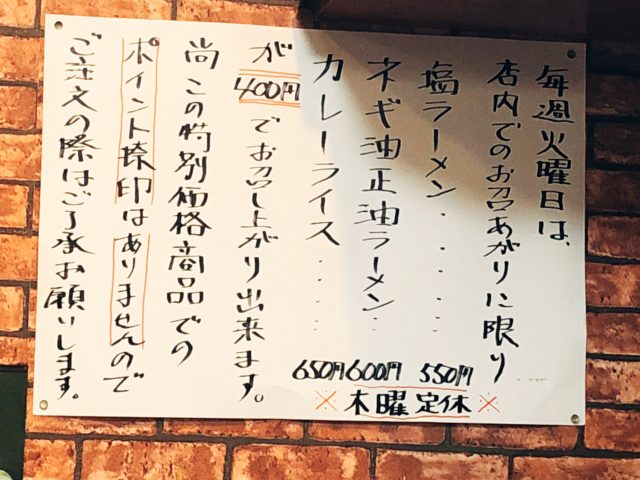 毎週火曜日は、
店内でのお召あがりに限り
塩ラーメン・・・・・ 550円
ネギ油正油ラーメン・・ 600円
カレーライス・・・・・ 650円
が400円でお召し上がり出来ます。
尚この特別価格商品での
ポイント捺印はありませんので
ご注文の際はご了承お願いします。
※木曜定休※